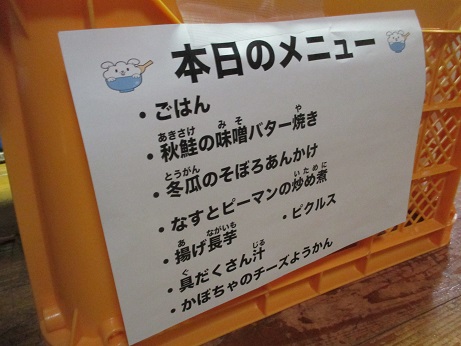 本日のメニュー
・ごはん
・秋鮭の味噌バター焼き
・冬瓜のそぼろあんかけ
・なすとピーマンの炒め煮
・揚げ長芋 ・ピクルス
・具だくさん汁
・かぼちゃのチーズようかん